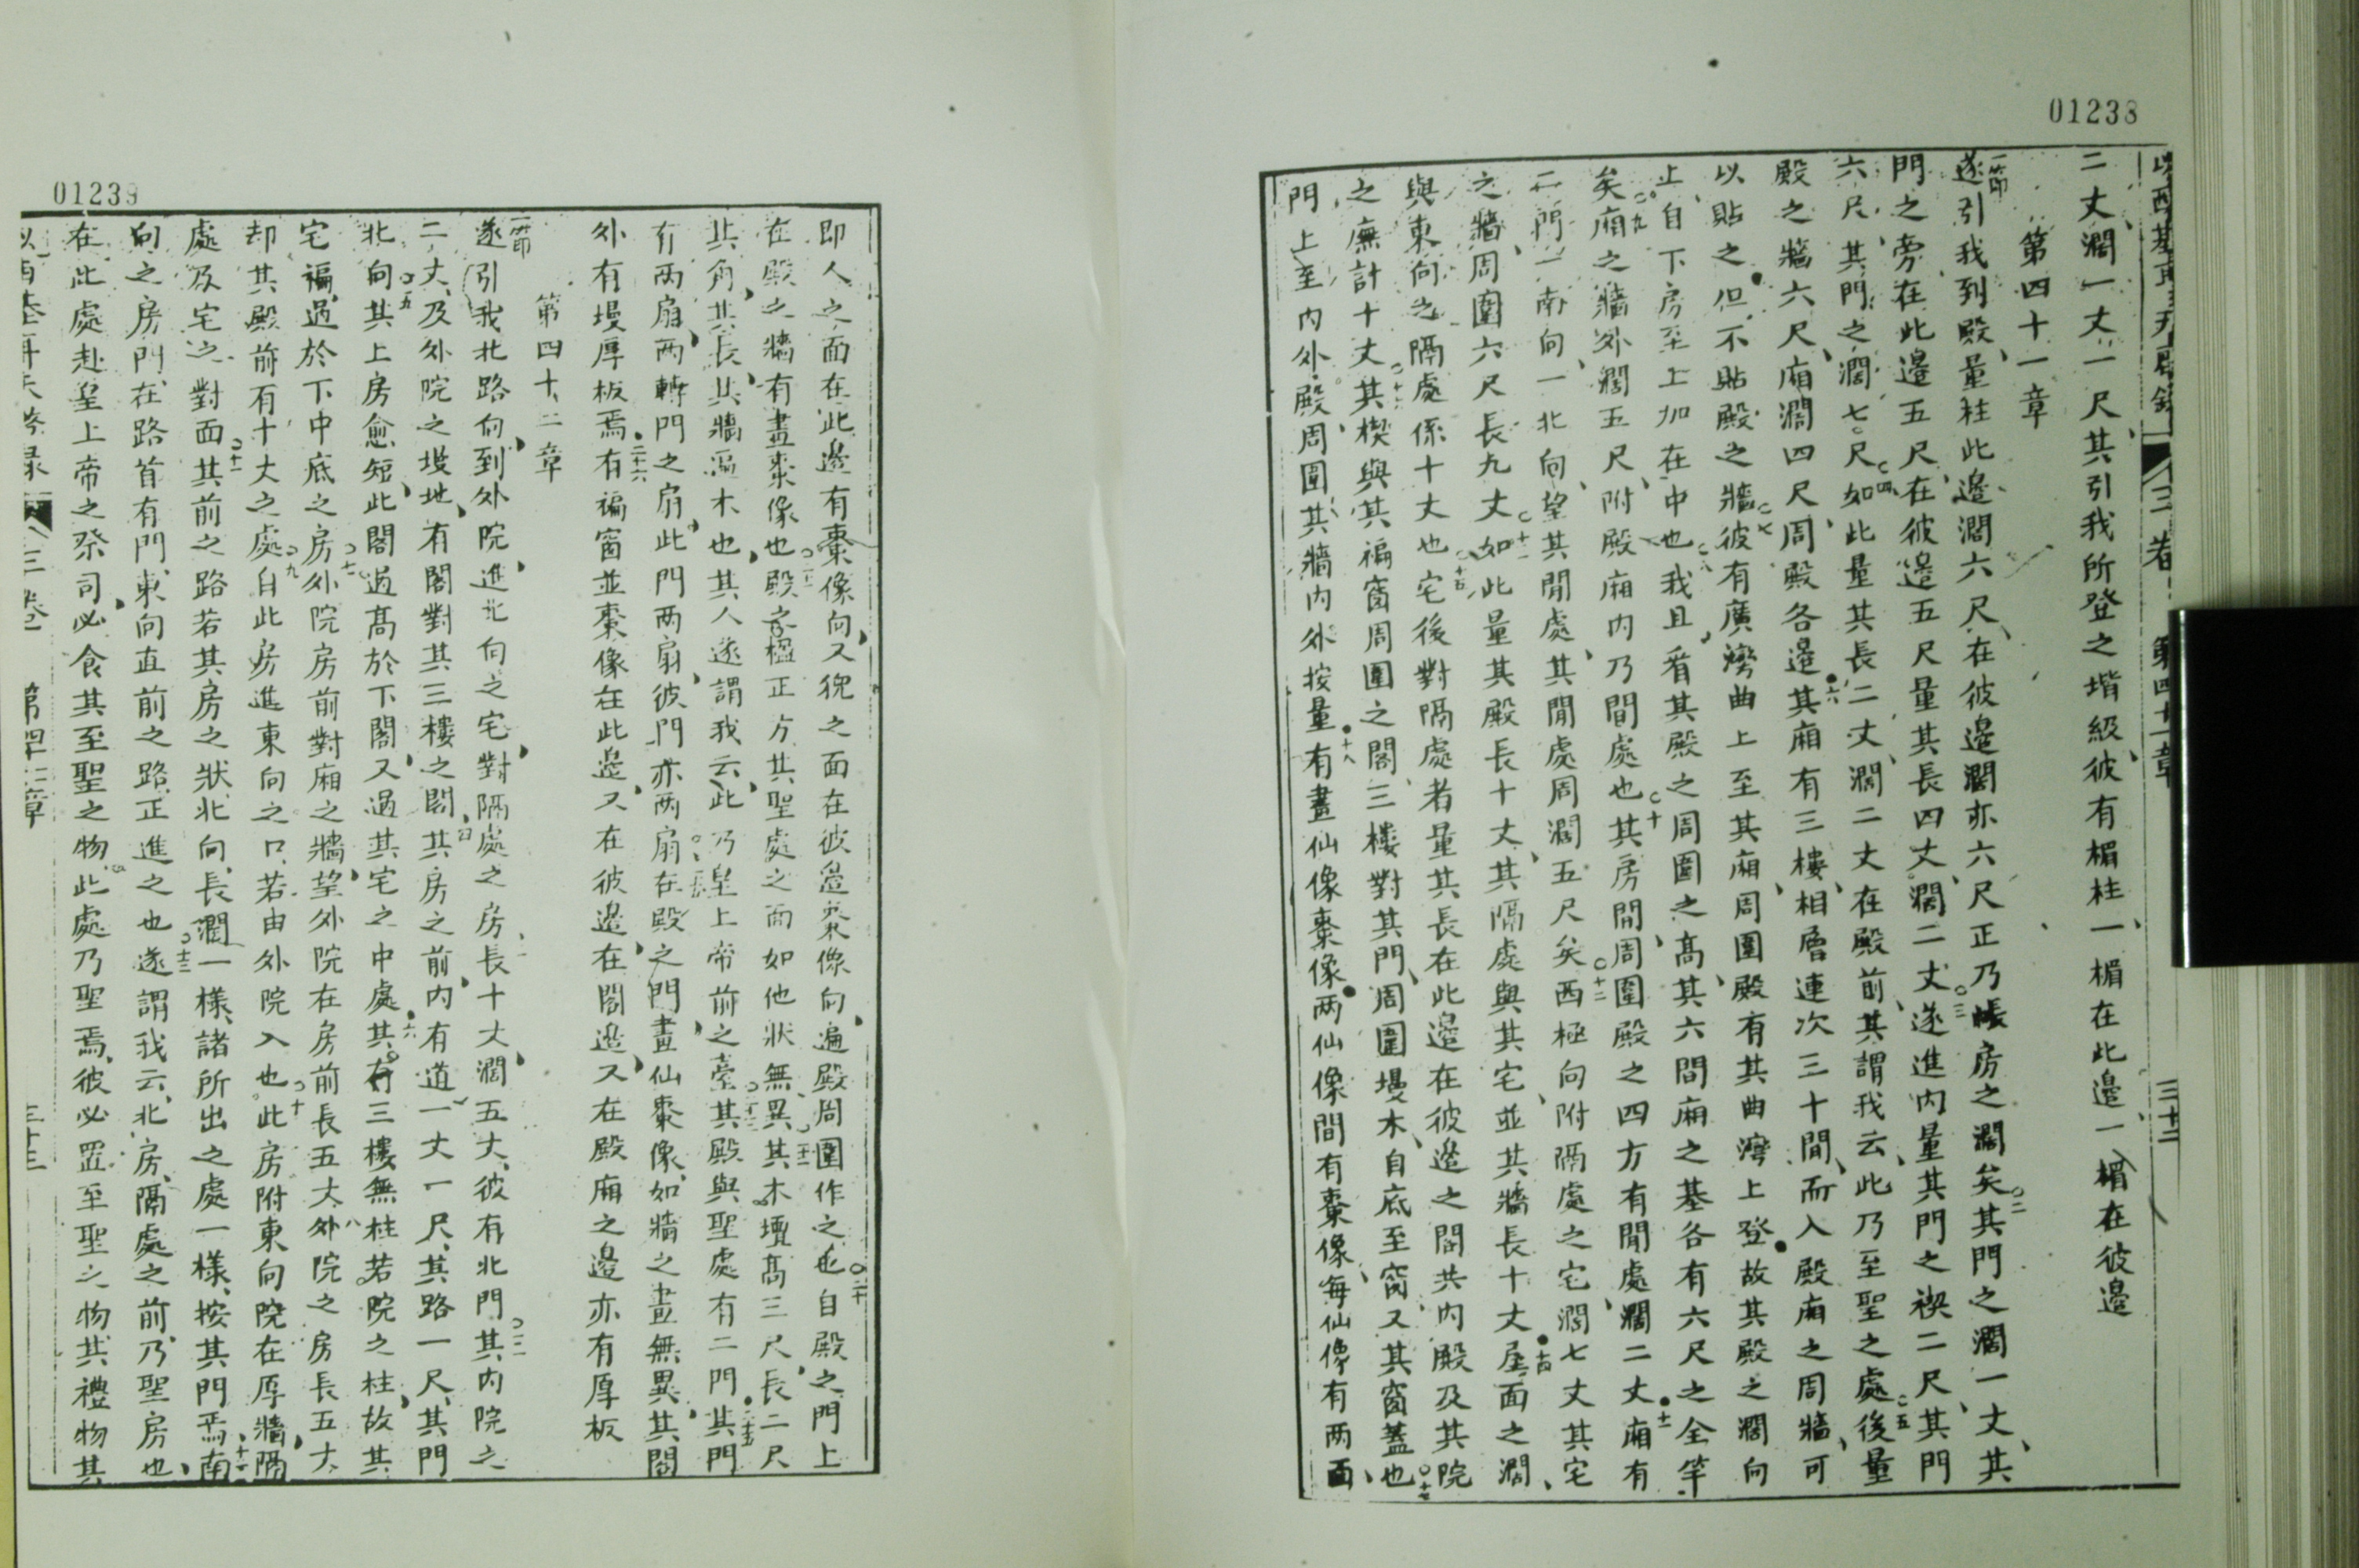 01238
以西基耳天啓錄 三卷 第四十一章 三十二
二丈濶一丈一尺其引我所登之堦級彼有楣柱一楣在此邉一楣在彼邉
第四十一章
一節
遂引我到殿量柱此邉濶六尺在彼邉濶亦六尺正乃帳房之濶矣〇二其門之濶一丈其
門之旁在此邉五尺在彼邉五尺量其長四丈濶二丈〇三遂進内量其門之禊二尺其門
六尺其門之濶七尺〇四如此量其長二丈濶二丈在殿前其謂我云此乃至聖之處〇五後量
殿之牆六尺廂濶四尺周殿各邉六其廂有三樓相層連次三十間而入殿廂之周牆可
以貼之但不貼殿之牆〇七彼有廣灣曲上至其廂周圍殿有其曲灣上登故其殿之濶向
上自下房至上加在中也〇八我且看其殿之周圍之高其六間廂之基各有六尺之全竿
矣〇九廂之牆外濶五尺附殿廂内乃間處也〇十其房間周圍殿之四方有閒處濶二丈十一廂有
二門一南向一北向望其閒處其閒處周濶五尺矣〇十二西極向附隔處之宅濶七丈其宅
之牆周圍六尺長九丈〇十三如此量其殿長十丈其隔處與其宅並其牆長十丈十四屋面之濶
與東向之隔處係十丈也〇十五宅後對隔處者量其長在此邉在彼邉之閣共内殿及其院
之廡計十丈〇十六其楔與其褊窗周圍之閣三樓對其門周圍墁木自底至窗又其窗蓋也〇十七
門上至内外殿周圍其牆内外按量十八有畫仙像棗像两仙像間有棗像每仙像有两面
01239
即人之面在此邉有棗像向又猊之面在彼邉棗像向遍殿周圍作之也〇二十自殿之門上
在殿之牆有畫棗像也〇二十一殿之楹正方其聖處之面如他狀無異〇二十二其木壇高三尺長二尺
其角其長其牆滙木也其人遂謂我云此乃皇上帝前之臺〇二十三其殿與聖處有二門二十四其門
有两扇两轉門之扇此門两扇彼門亦两扇〇二十五在殿之門畫仙棗像如牆之畫無異其閣
外有墁厚板焉二十六有褊窗並棗像在此邉又在彼邉在閣邉又在殿廂之邉亦有厚板
第四十二章
一節
遂引我北路向到外院進北向之宅對隔處之房〇二長十丈濶五丈彼有北門〇三其内院之
二丈及外院之墁地有閣對其三樓之閣〇四其房之前内有道一丈一尺其路一尺其門
北向〇五其上房愈短此閣過高於下閣又過其宅之中處〇六其有三樓無柱若院之柱故其
宅褊過於下中底之房〇七外院房前對廂之牆望外院在房前長五丈〇八外院之房長五丈
却其殿前有十丈之處〇九自此房進東向之口若由外院入也〇十此房附東向院在厚牆隔
處及宅之對面〇十一其前之路若其房之狀北向長濶一樣諸所出之處一樣按其門焉〇十二南
向之房門在路首有門東向直前之路正進之也〇十三遂謂我云北房隔處之前乃聖房也
在此處赴皇上帝之祭司必食其至聖之物此處乃聖焉彼必置至聖之物其禮物其
以西基耳天啓錄 三卷 第四十二章 三十三